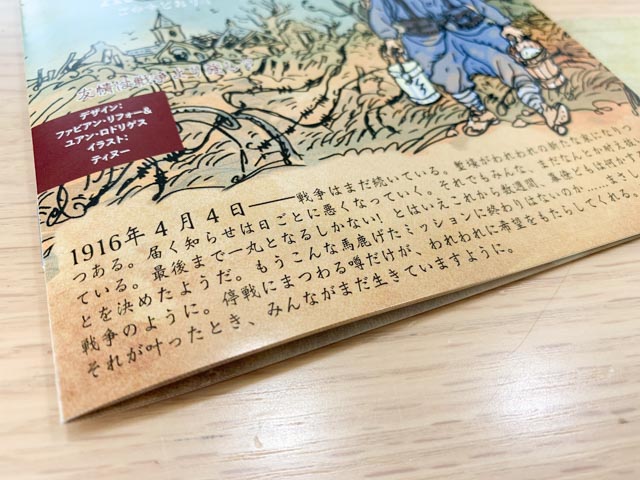 友情は戦争より強し？
デザイン：
ファビアン・リフォー＆
ユアン・ロドリゲス
イラスト：
ティヌー
1916年 4月4日――戦争はまだ続いている。塹壕がわれわれの
つある。届く知らせは日ごとに悪くなっていく。それでもみんな、
ている。最後まで一丸となるしかない！とはいえこれから数週間、
とを決めたようだ。もうこんな馬鹿げたミッションに終わりはないのか……まさし
戦争のように。停戦にまつわる噂だけが、われわれに希望をもたらしてくれる。
それが叶ったとき、みんながまだ生きていますように。